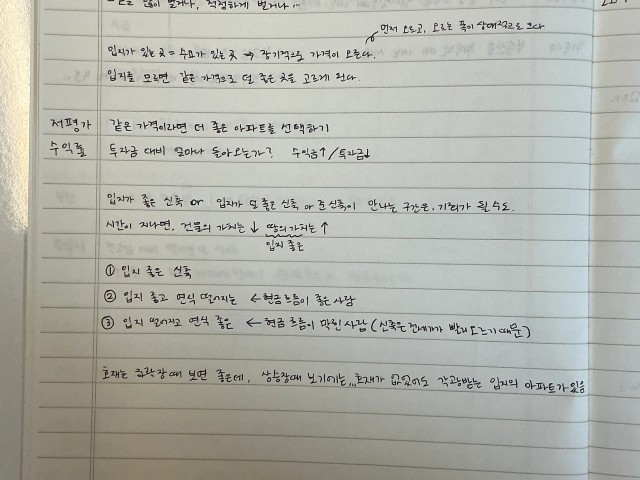 많이 벌거나, 적정하게 벌거나...
먼저 오르고, 오르는 폭이 상대적으로 크다
입지가 있는 곳 = 수요가 있는 곳 → 장기적으로 가격이 오른다.
입지를 모르면 같은 가격으로 덜 좋은 곳을 고르게 된다.
저평가 같은 가격이라면 더 좋은 아파트를 선택하기
수익률 투자금 대비 얼마나 돌아오는가? 수익금↑/투자금↓
입지가 좋은 신축 or 입지가 덜 좋은 신축 or 준신축이 만나는 구간은. 기회가 될 수도.
시간이 지나면, 건물의 가치는 ↓ 땅의 가치는 ↑
입지 좋은
① 입지 좋은 신축
② 입지 좋고 연식 떨어지는 ← 현금흐름이 좋은 사람
③ 입지 떨어지고 연식 좋은 ← 현금 흐름이 막힌 사람 (신축은 전세가가 빨리 오르기 때문)
호재는 하락장때 보면 좋은데, 상승장때 보기에는... 호재가 없었어도 각광받는 입지의 아파트가 있음